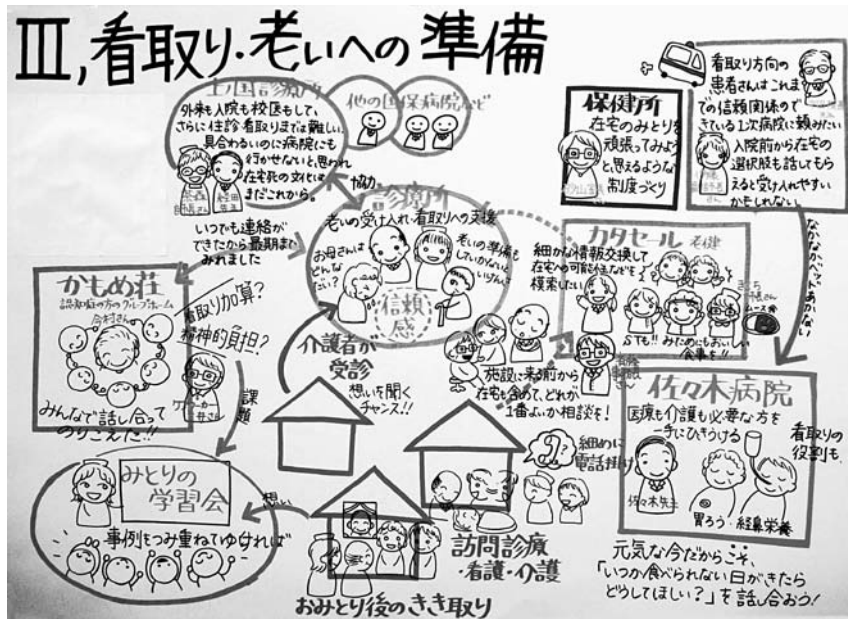 III, 看取り・老いへの準備
外来も入院も校医もして、
さらに往診・看取りまでは難しい。
具合わるいのに病院にも
行かせないと、思われ
在宅死の文化は
まだこれから。
他の国保病院など
保健所
在宅のみとりを
頑張ってみよう
と思えるような
制度づくり
看取り方向の
患者さんはこれま
での信頼関係ので
きている1次病院に頼みたい
入院前から在宅の
選択肢も話してもら
えると受け入れやすい
かもしれない。
なかなかベッドあかない
協力
診療所
老いの受け入れ・看取りへの支援
お母さんは
どんな
だい?
老いの準備も
していかないと
いけんよ
信頼
感
いつでも連絡が
できたから最期まで
みれました
かもめ荘
認知症の方のグループホーム
今村さん
みんなで話し合って
のりこえた!!
看取り加算?
精神的負担?
課題
介護者が
受診
想いを聞く
チャンス!!
カタセール 老健
細かな情報交換して
在宅への可能性なども
模索したい
STも!!
みためにもおいしい
食事を!!
ムース食
施設に来る前から
在宅も含めて、どれが
1番よいか相談を!
佐々木病院
医療も介護も必要な方を
一手にひきうける
看取りの
役割も
佐々木先生
胃ろう・経鼻栄養
細めに
電話掛け
訪問診療
・看護・介護
みとりの
学習会
想い
事例をつみ重ねてゆければ
おみとり後のきき取り
元気な今だからこそ、
「いつか食べられない日がきたら
どうしてほしい?」を話し合おう!